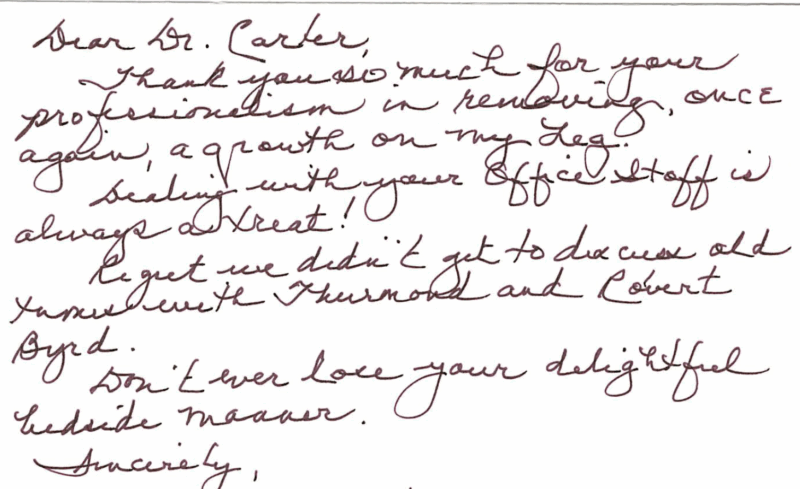 Dear Dr. Carter,
Thank you so much for your
professionalism in removing, once
again, a growth on my Leg.
Dealing with your Office Staff is
always a treat!
Regret we didn't get to discuss old
times with Thurmond and Robert
Byrd.
Don't ever lose your delightful
bedside manner.
Sincerely,